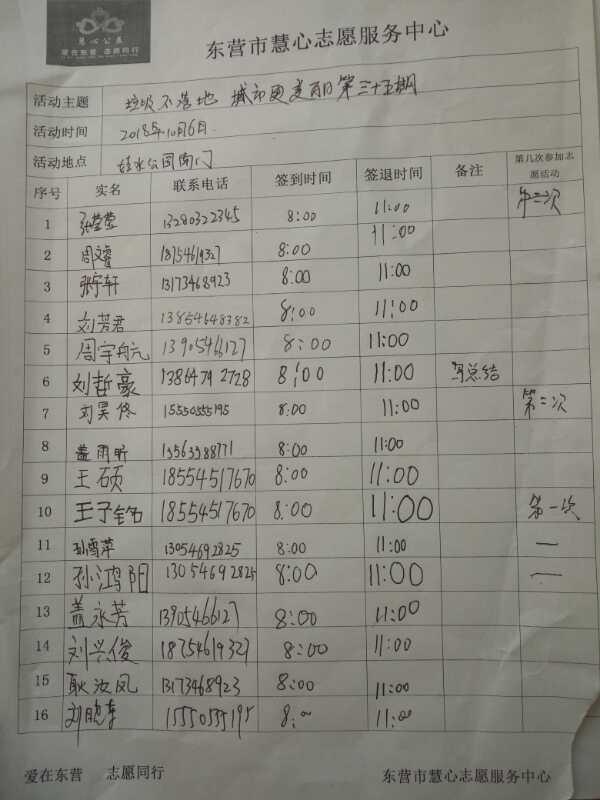 慧心公益
爱在东营 志愿同行
东营市慧心志愿服务中心
活动主题 垃圾不落地 城市更美丽第三十五期
活动时间 2018年10月6日
活动地点 公园南门
序号 实名 联系电话 签到时间 签退时间 备注 第几次参加志愿活动
1 张莹莹 13280322345 8:00 11:00 第二次
2 周文睿 18754619327 8:00 11:00
3 张宇轩 13173468923 8:00 11:00
4 刘芳君 13854648382 8:00 11:00
5 周宇航 13905466127 8:00 11:00
6 刘哲豪 13864792728 8:00 11:00 写总结
7 刘昊佟 15550555195 8:00 11:00 第二次
8 盖雨昕 13563388771 8:00 11:00
9 王硕 18554517670 8:00 11:00
10 王子铭 18554517670 8:00 11:00 第一次
11 孙雪萍 13054692825 8:00 11:00 一
12 孙鸿阳 13054692825 8:00 11:00 一
13 盖永芳 13905466127 8:00 11:00
14 刘兴俊 18754619327 8:00 11:00
15 耿汝凤 13173468923 8:00 11:00
16 刘晓东 15550555195 8:00 11:00
爱在东营 志愿同行 东营市慧心志愿服务中心